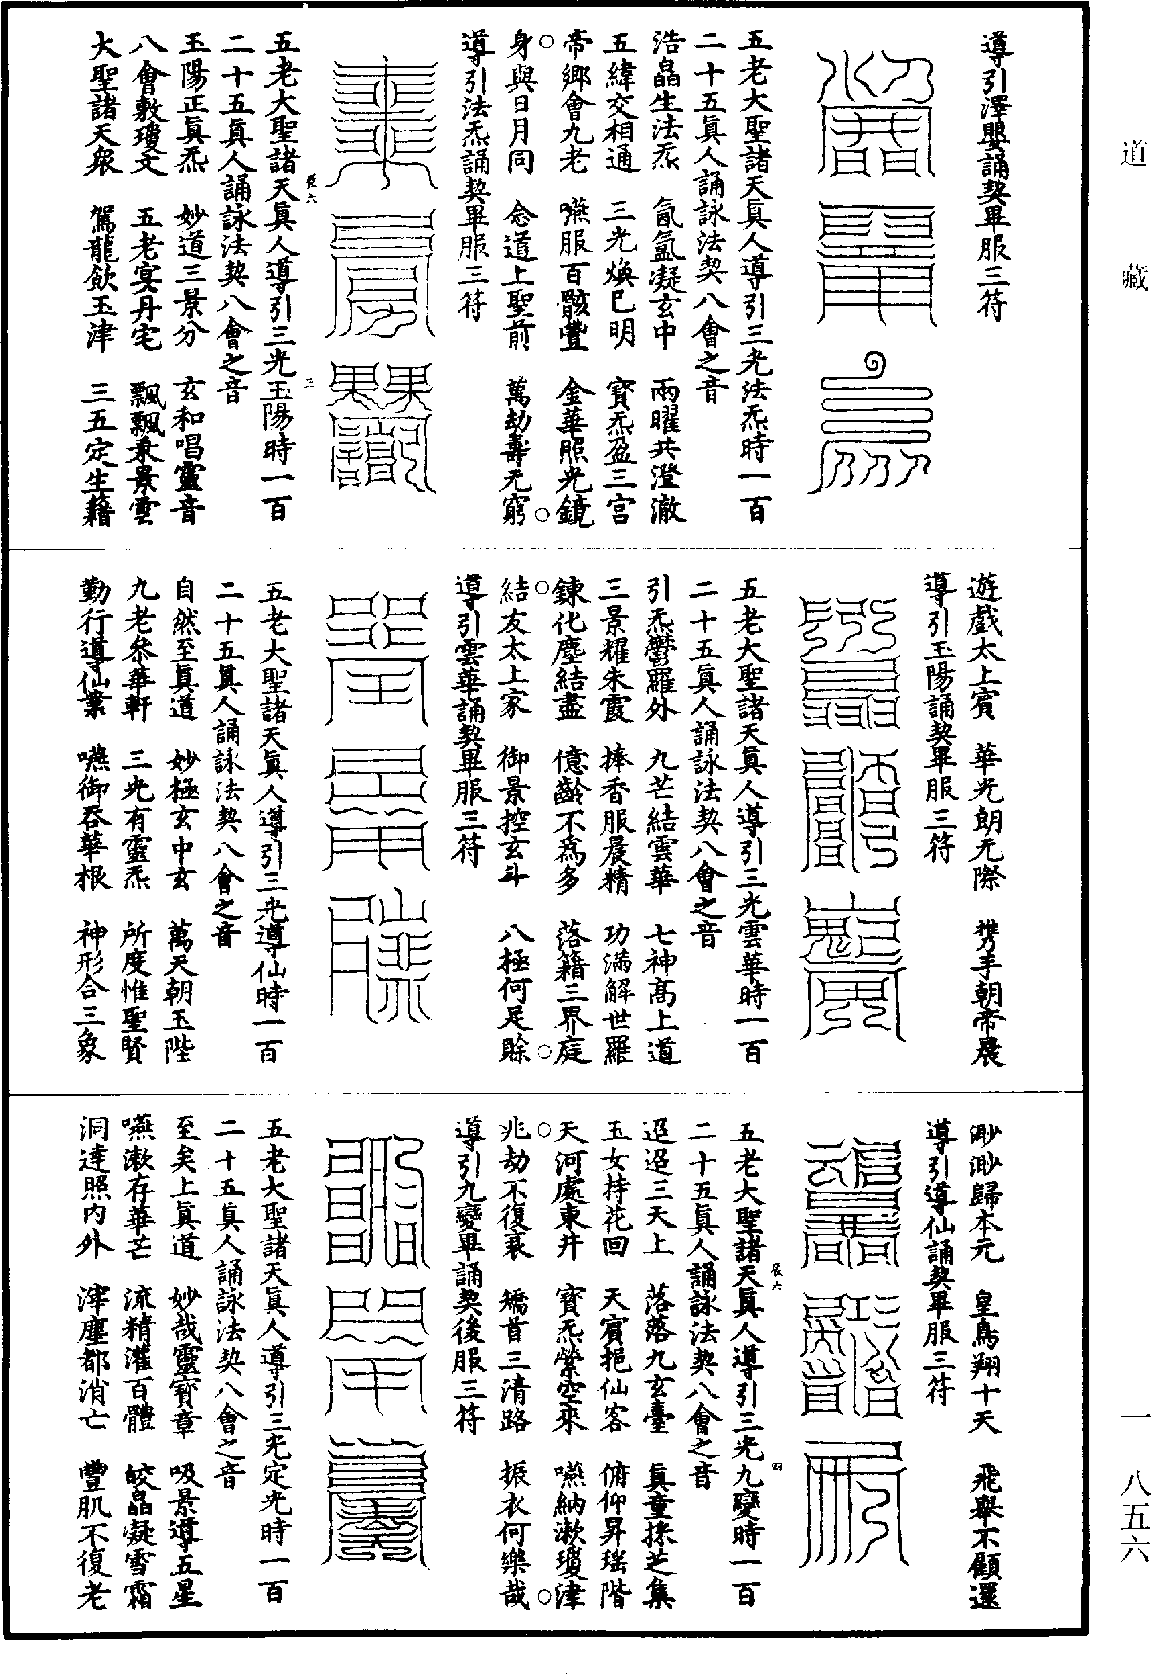 道藏
一八五六
導引澤嬰誦契畢服三符
五老大聖諸天眞人導引三光法炁時一百
二十五眞人誦詠法契八會之音
浩晶生法炁 氤氳凝玄中 兩曜共澄澈
五緯交相通 三光煥已明 寶炁盈三宮
帝鄉會九老 嚥服百骸豐 金華照光鏡
身與日月同 念道上聖前 萬劫壽无窮
導引法炁誦契畢服三符
五老大聖諸天眞人導引三光玉陽時一百
二十五眞人誦詠法契八會之音
玉陽正眞炁 妙道三景分 玄和唱靈音
八會敷瓊文 五老宴丹宅 飄飄乘景雲
大聖諸天衆 駕龍飲玉津 三五定生籍
遊戲太上賓 華光朗元際 携手朝帝晨
導引玉陽誦契畢服三符
五老大聖諸天眞人導引三光雲華時一百
二十五眞人誦詠法契八會之音
引炁鬱羅外 九芒結雲華 七神高上道
三景耀朱霞 捧香服晨精 功滿解世羅
鍊化塵結盡 億齡不爲多 落籍三界庭
結友太上家 御景控玄斗 八極何足賒
導引雲華誦契畢服三符
五老大聖諸天眞人導引三光導仙時一百
二十五眞人誦詠法契八會之音
自然至眞道 妙極玄中玄 萬天朝玉陛
九老叅華軒 三光有靈炁 所度惟聖賢
勤行導仙業 嚥御吞華根 神形合三象
渺渺歸本元 皇鳥翔十天 飛舉不顧還
導引導仙誦契畢服三符
五老大聖諸天眞人導引三光九變時一百
二十五眞人誦詠法契八會之音
迢迢三天上 落落九玄臺 眞童採芝集
玉女持花回 天賓挹仙客 俯仰昇瑤階
天河處東井 寶炁縈空來 嚥納漱瓊津
兆劫不復衰 矯首三清路 振衣何樂哉
導引九變畢誦契後服三符
五老大聖諸天眞人導引三光定光時一百
二十五眞人誦詠法契八會之音
至矣上眞道 妙哉靈寶章 吸景導五星
嚥漱存華芒 流精灌百體 皎晶凝雪霜
洞達照內外 滓塵都消亡 豐肌不復老